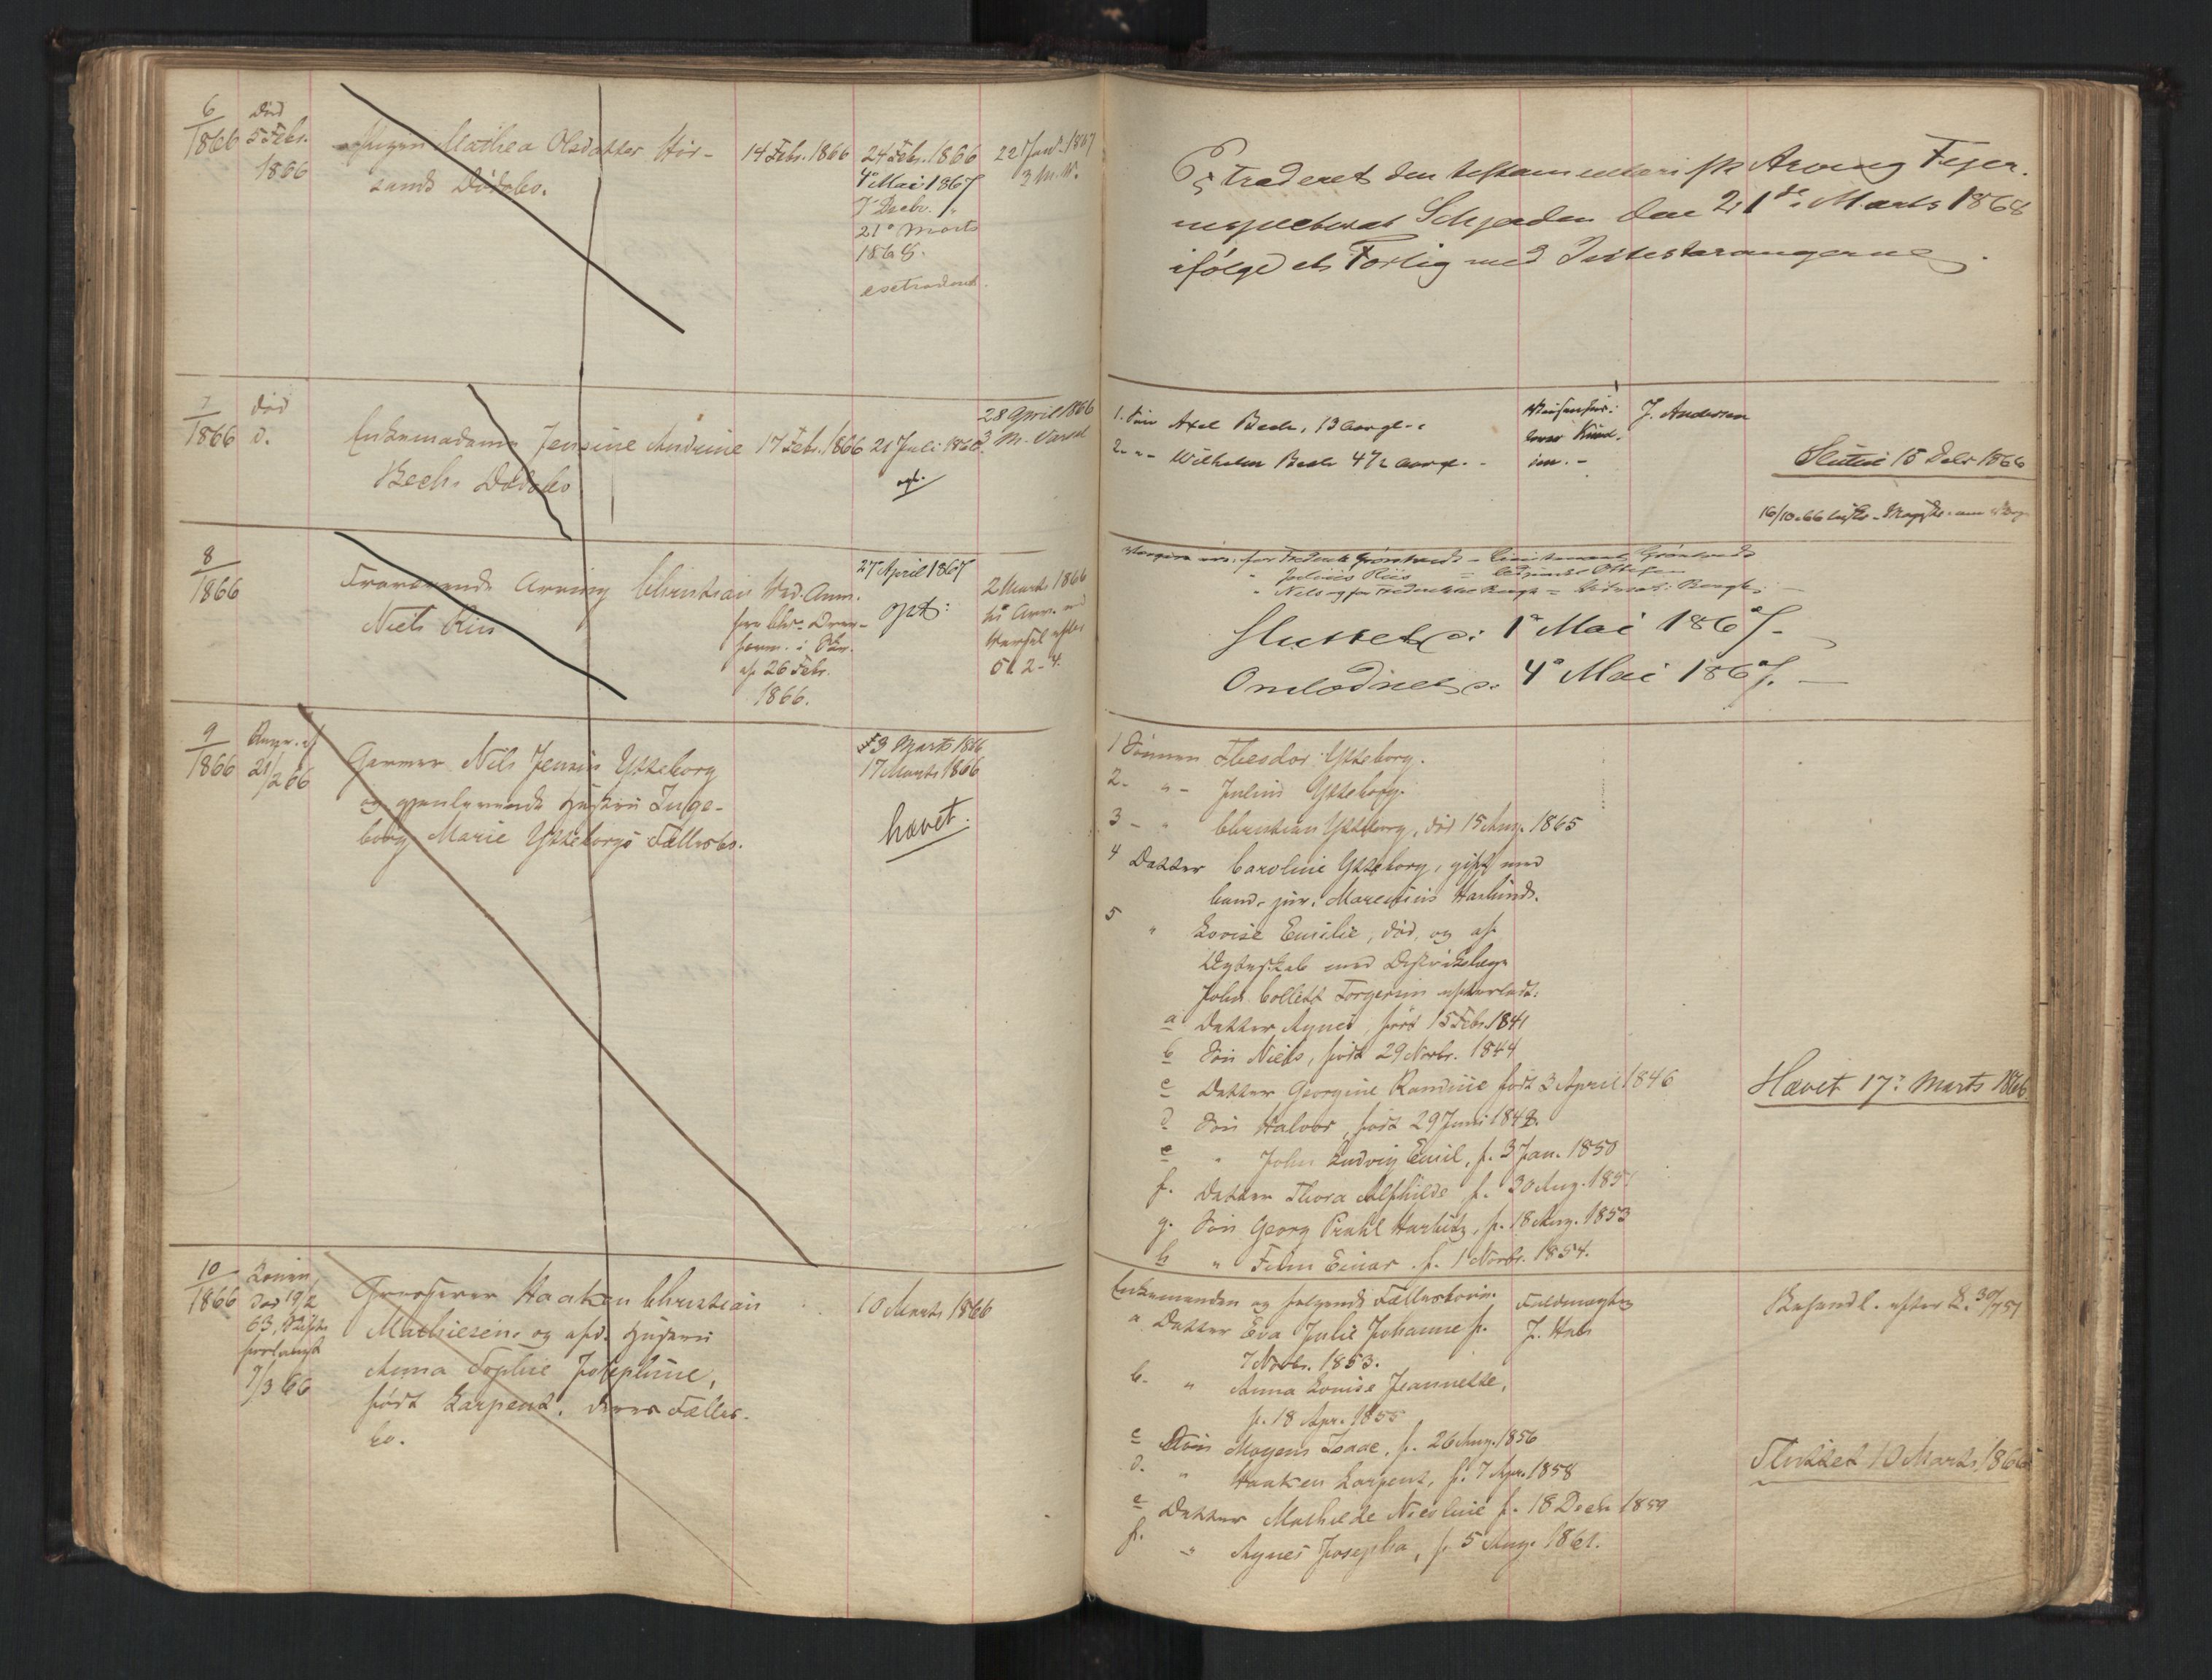 6
1866
Död
5 Febr.
1866
Mathea Olsdatter Hör-
sands Dödsbo.
14 Febr. 1866
24 Febr. 1866
4 Mai 1867
7 Decbr. "
21 Marts
1868.
extraderet.
22 Jan. 1867
3 M. V.
Extraderet den testamentariske Arving Tejer-
inspecteur Schjerden den 21de Marts 1868
ifölge et Forlig med Intestatarvingerne.
7
1866
död
d.
Enkemadame Jensine Andrine
Bechs Dödsbo
17 Febr. 1866
21 Juli 1866
opt.
28 April 1866
3 M. Varsel
1. Sön Axel Bech, 13 Aar gl.
2. " - Wilhelm Bech 4½ Aar gl. -
J. Andersen
Sluttet 15 1866
16/10. 66
8
1866
Fraværende Arving Christian
Niels Riis
Ved. Anm.
fra
form. i
af 26 Febr.
1866.
27 April 1867
opt:
2 Marts 1866
Varsel efter
5. 2 - 4.
Sluttet d: 1 Mai 1867. -
Omlodnet d: 4 Mai 1867. -
9
1866
Anm. af
21/2 66
Garver Nils Jensen Ytteborg
og gjenlevende Hustru Inge-
borg Marie Ytteborgs Fællesbo.
3 Marts 1866
17 Marts 1866
hævet.
1 Sönnen Theodor Ytteborg.
2- " - Julius Ytteborg.
3 - " Christian Ytteborg, död 15 Aug. 1865
4 Datter Caroline Ytteborg, gift med
cand. jur. Marentius Haslund.
5 " Lovise Emilie, död, og af
Ægteskab med Districtslæge
John Collett Torgersen efterladt:
a Datter Agnes, født 15 Febr. 1841
b Sön Niels, født 29 Novbr. 1844
c Datter Georgine Randine født 3 April 1846
d Sön Halvor, født 29 Juni 1848.
e " John Ludvig Emil, f. 3 Jan. 1850
f. Datter Thora Alfhilde f. 30 Aug. 1851
g. Sön Georg Prahl Harbitz, f. 18 Aug. 1853
h " Finn Einar f. 1 Novbr. 1854.
Hævet 17 Marts 1866
10
1866
Konen
död 19/2
63, Skifte
forlangt
7/3 66
Grosserer Haaken Christian
Mathiesen og afd. Hustru
Anna Sophie Josephine,
født Larpent, deres Fælles-
bo.
10 Marts 1866
Enkemanden og følgende Fællesbörn:
a Datter Eva Julie Johanne f.
7 Novbr. 1853.
b. " Anna Louise Jeannette,
f. 18 Apr. 1855
c Sön Mogens Isaae, f. 26 Aug. 1856
d. " Haaken Larpent, f. 7 Apr. 1858
e Datter Mathilde Nicoline f. 18 Decbr 1859
f. " Agnes Josepha, f. 5 Aug. 1861.
Fuldmægtig
Behandl. efter L. 30/7 51
Sluttet 10 Marts 1866